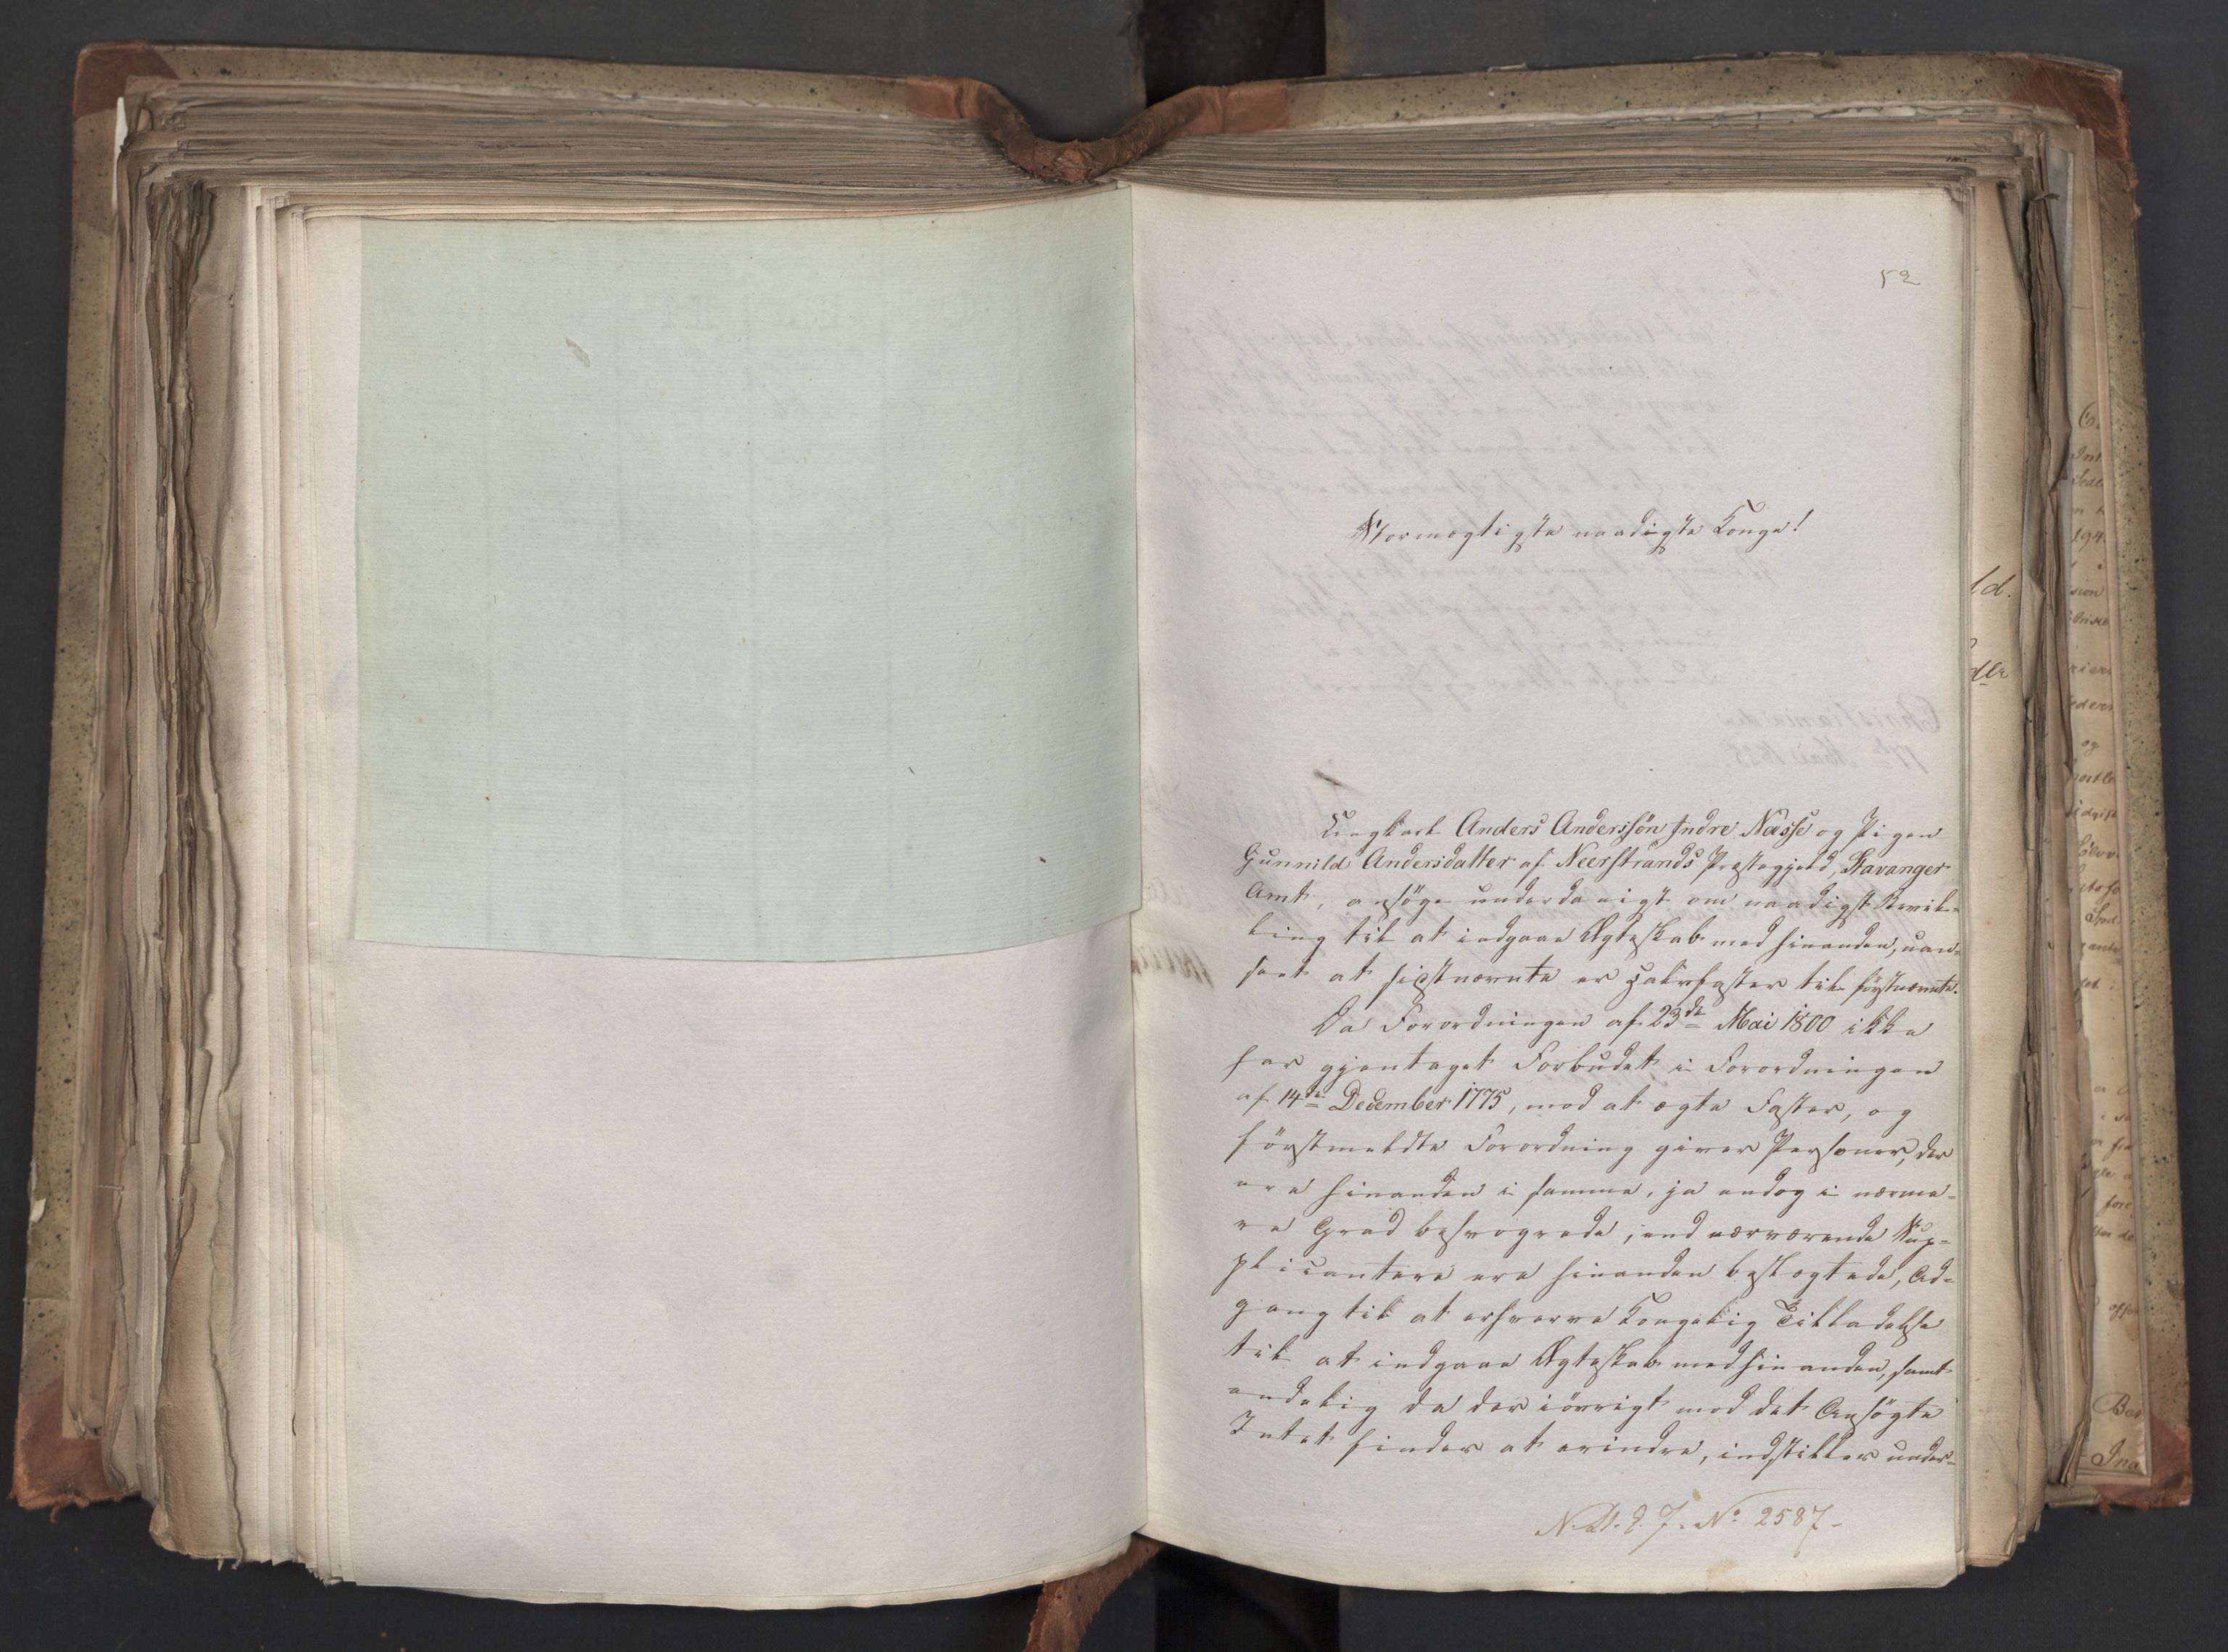 52
Stormægtigste naadigste Konge!
Ungkarl Anders Anderssön Indre Næsse og Pigen
Gunnild Andersdatter af Neerstrands Præstegjæld, Stavanger
Amt, ansöge underdanigst om naadigst Bevil=
ling til at indgaae Ægteskab med hinanden, uan=
seet at sidstnævnte er halvfaster til förstnævnte.
Da Forordningen af 23de Mai 1800 ikke
har gjentaget Forbudet i Forordningen
af 14de December 1775, mod at ægte Faster, og
förstmeldte Forordning giver Personer, der
ere hinanden i samme, ja endog i nærme=
re Grad besvogrede, end nærværende Sup=
plicantere ere hinanden beslægtede, Ad=
gang til at erhverve Kongelig Tilladelse
til at indgaae Ægteskab med hinanden, samt
endelig da der iövrigt mod det Ansögte
Intet findes at erindre, indstilles under=
N. D. d. J. No 2587-
ld.